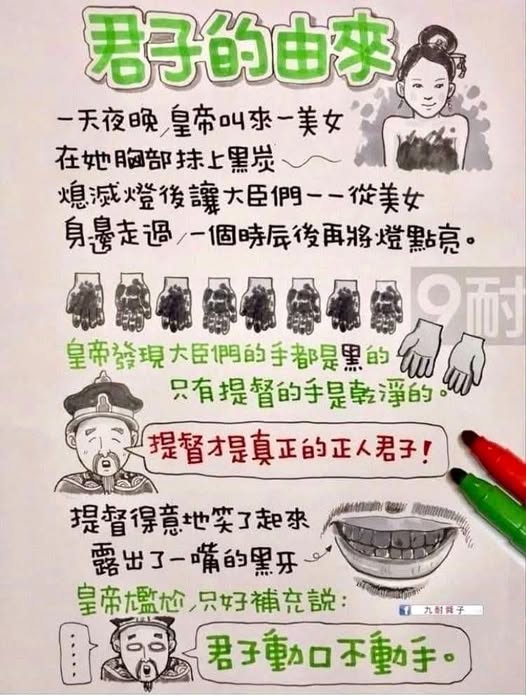 君子的由來
一天夜晚,皇帝叫來一美女
在她胸部抹上黑炭
熄滅燈後讓大臣們一一從美女
身邊走過,一個時辰後再將燈點亮。
9耐
皇帝發現大臣們的手都是黑的
只有提督的手是乾淨的。
提督才是真正的正人君子!
提督得意地笑了起來
露出了一嘴的黑牙
f 九耐舜子
皇帝尷尬,只好補充說:
.....
君子動口不動手。